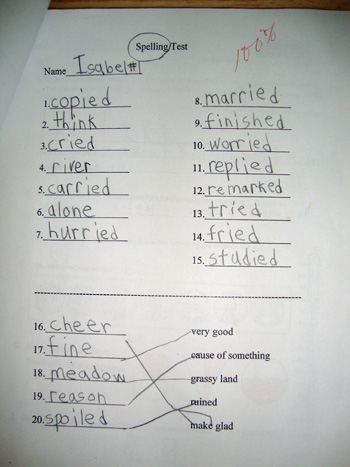 Spelling Test
100%
Name Isabel #1
1. copied
2. think
3. cried
4. river
5. carried
6. alone
7. hurried
8. married
9. finished
10. worried
11. replied
12. remarked
13. tried
14. fried
15. studied
16. cheer
17. fine
18. meadow
19. reason
20. spoiled
very good
cause of something
grassy land
ruined
make glad